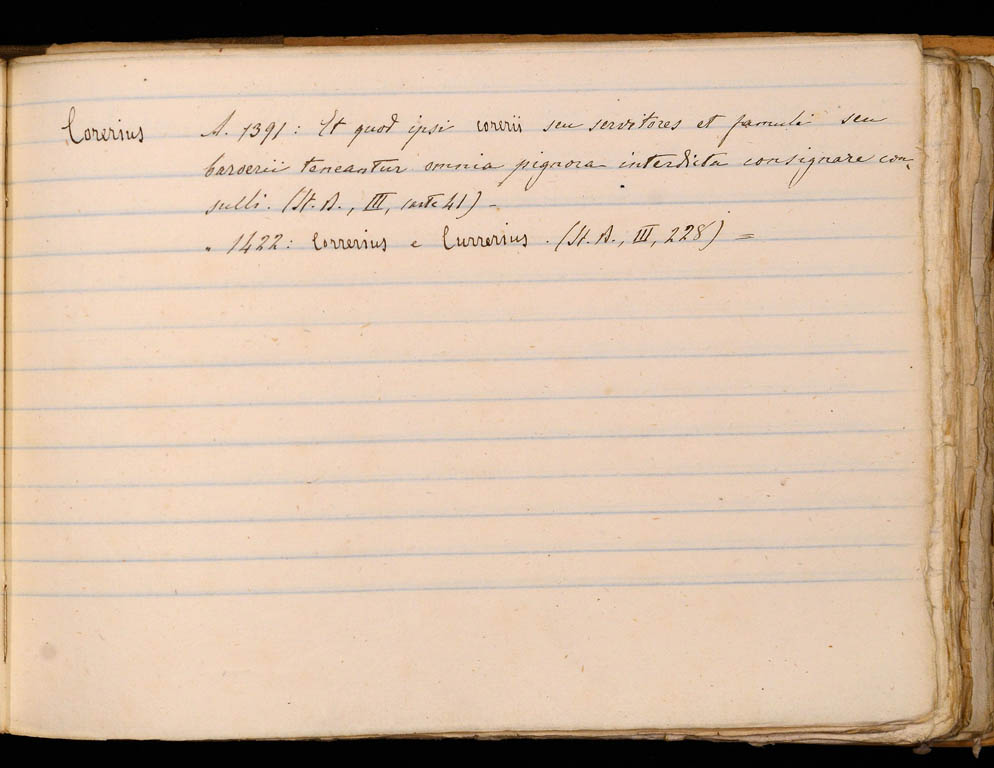 Corerius A. 1391: Et quod ipsi corerii seu servitores et famuli seu
baroerii teneantur omnia pignora interdicta consignare con-
sulli. (St. A., III, carte 41) -
" 1422: Correrius e Currerius. (St. A., III, 228) =